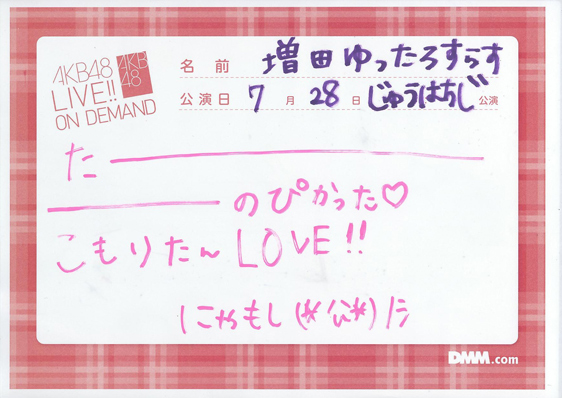 AKB48
LIVE!!
ON DEMAND
AKB
48
名前 増田ゆったろすらす
公演日 7月28日 じゅうはちじ 公演
たーーーーーーーー
ーーーーのぴかった♡
こもりたん LOVE!!
にゃもし(*'ω'*)ﾊﾞｼ
DMM.com